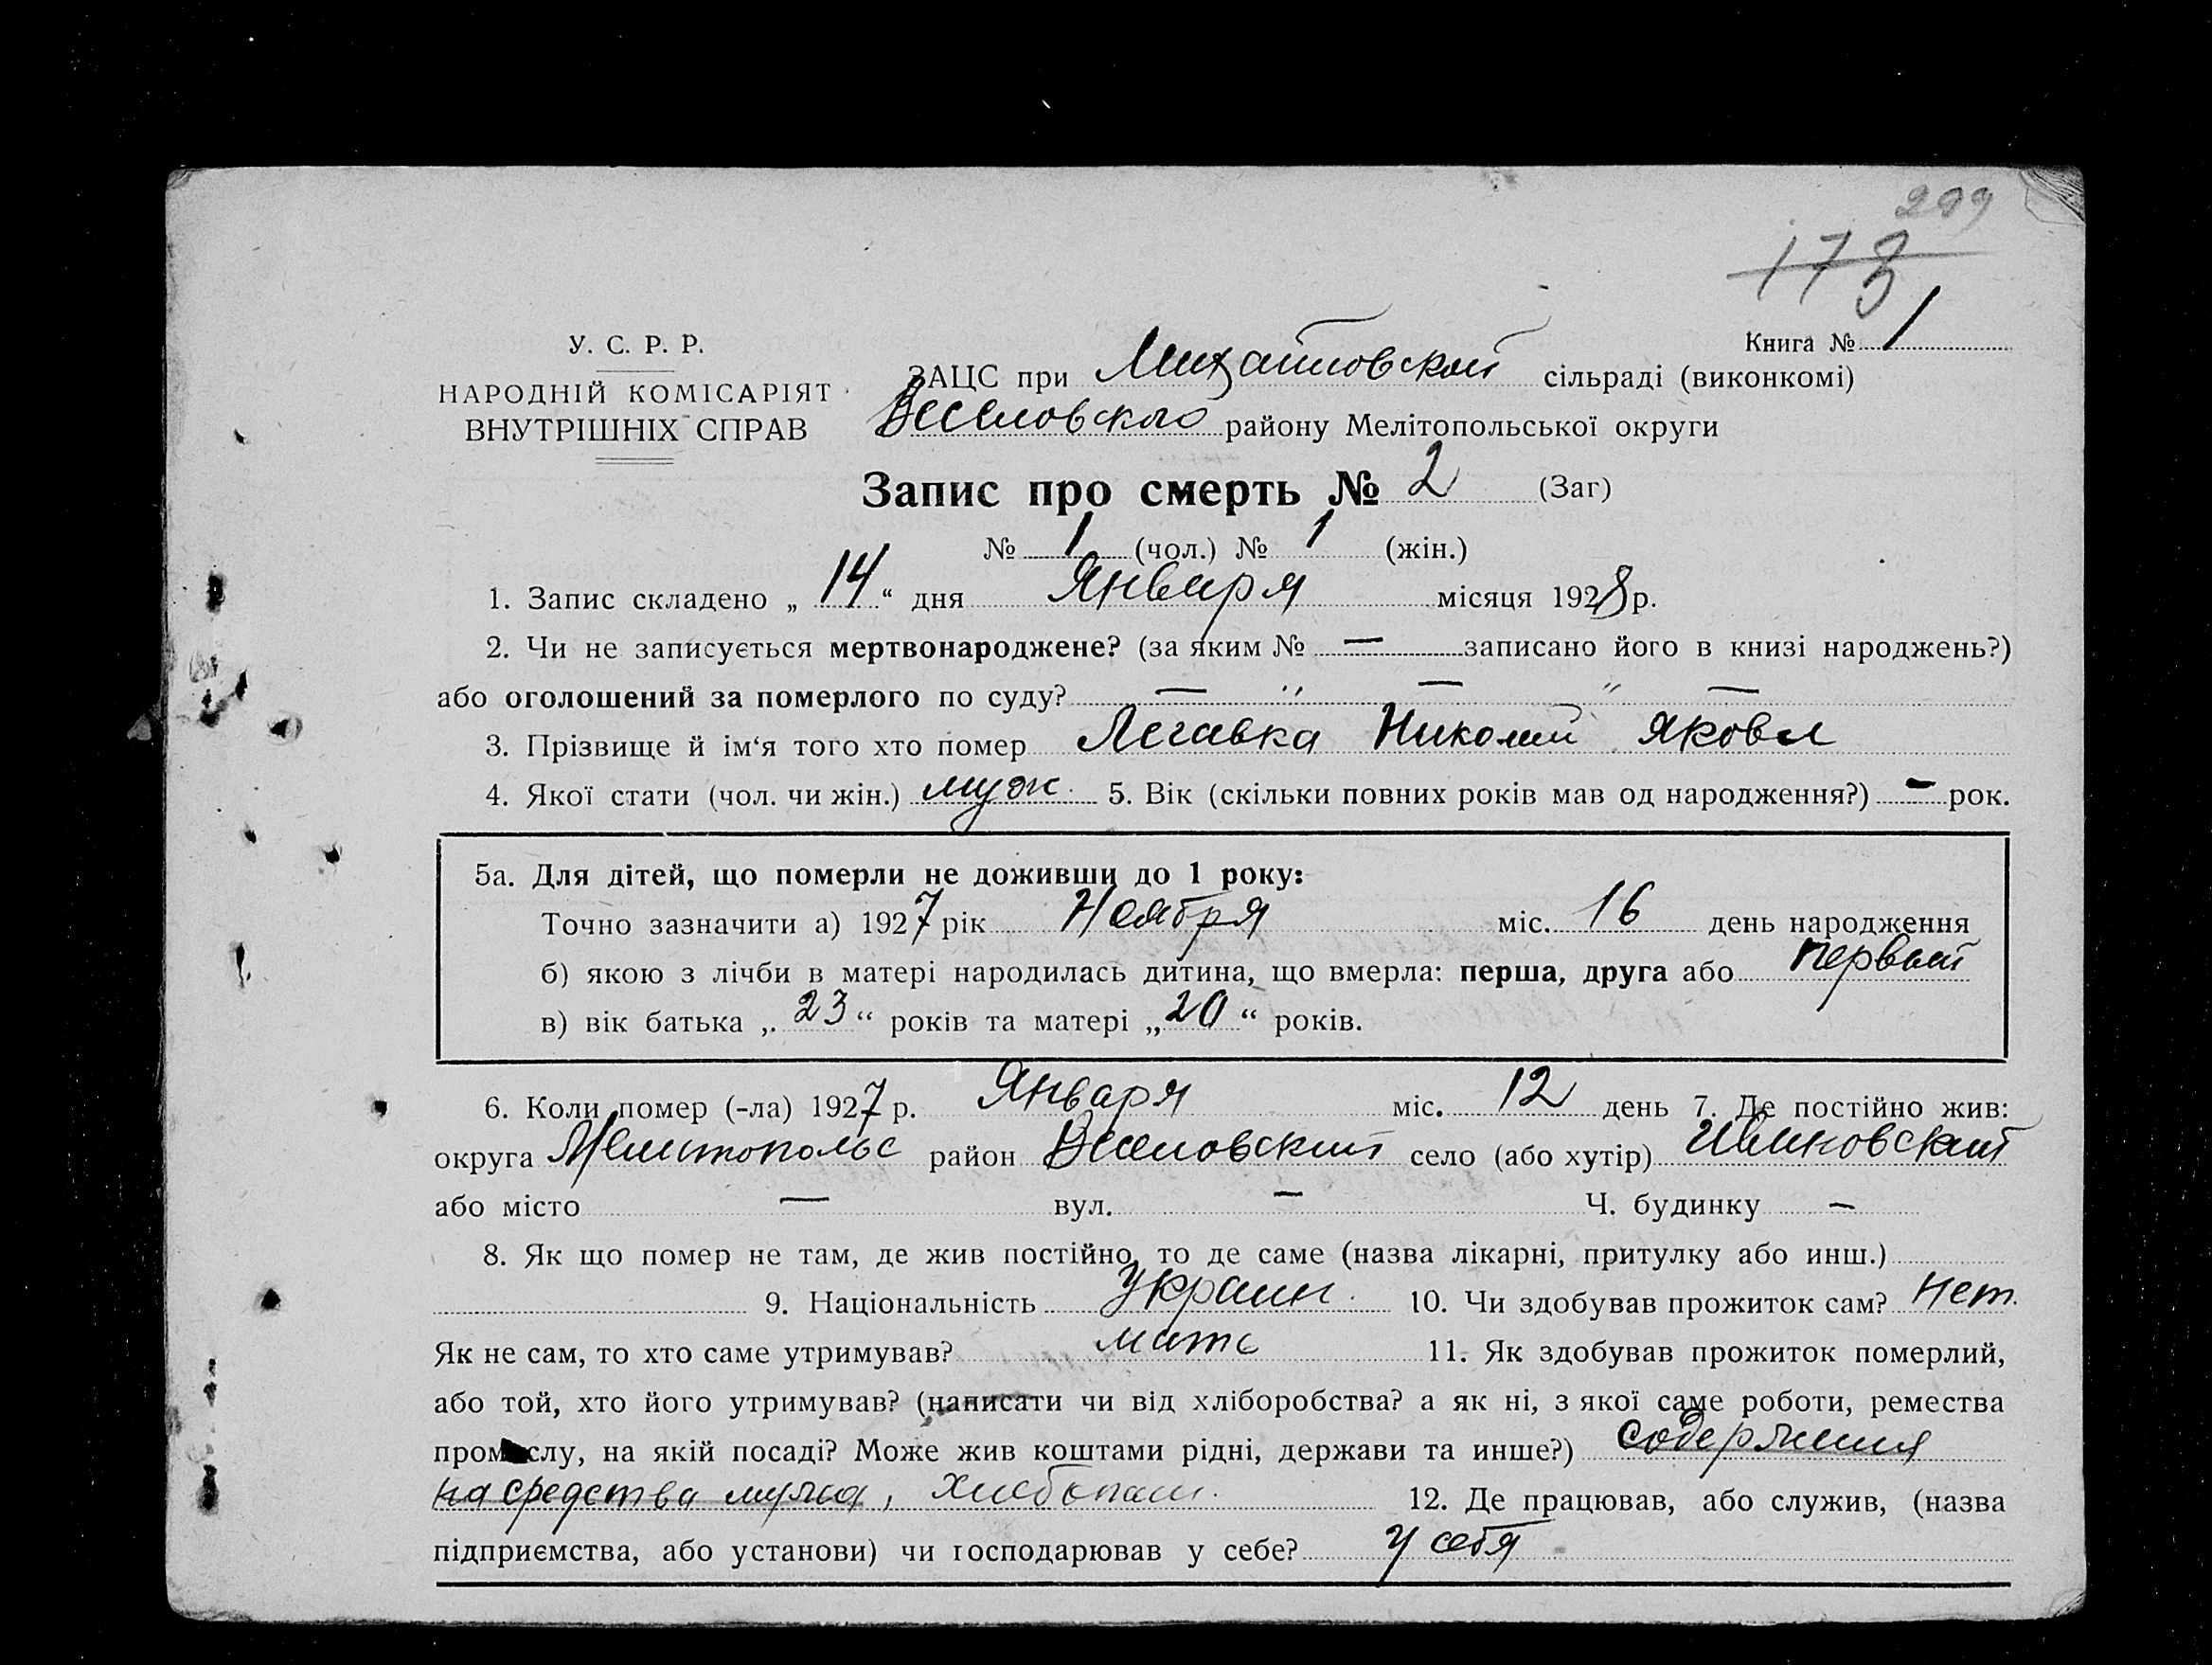 299
173
У. С. Р. Р.
НАРОДНІЙ КОМІСАРІЯТ
ВНУТРІШНІХ СПРАВ
Книга № 1
ЗАЦС при Михайловской сільраді (виконкомі)
Веселовского району Мелітопольської округи
Запис про смерть № 2 (Заг)
№ 1 (чол.) № 1 (жін.)
1. Запис складено „ 14 “ дня Января місяця 1928 р.
2. Чи не записується мертвонароджене? (за яким № — записано його в книзі народжень?)
або оголошений за померлого по суду? — " — " —
3. Прізвище й ім‘я того хто помер Легавка Николай Яковл
4. Якої стати (чол. чи жін.) муж. 5. Вік (скільки повних років мав од народження?) - рок.
5а. Для дітей, що померли не доживши до 1 року:
Точно зазначити а) 1927 рік Ноября міс. 16 день народження
б) якою з лічби в матері народилась дитина, що вмерла: перша, друга або первый
в) вік батька „ 23 “ років та матері „ 20 “ років.
6. Коли помер (-ла) 1927 р. Января міс. 12 день 7. Де постійно жив:
округа Мелитопольс район Веселовский село (або хутір)
або місто — вул. — Ч. будинку —
8. Як що помер не там, де жив постійно, то де саме (назва лікарні, притулку або инш.)
9. Національність Украин. 10. Чи здобував прожиток сам? Нет.
Як не сам, то хто саме утримував? мать 11. Як здобував прожиток померлий,
або той, хто його утримував? (написати чи від хліборобства? а як ні, з якої саме роботи, ремества
промислу, на якій посаді? Може жив коштами рідні, держави та инше?) содержания
на средства мужа, хлебопаш. 12. Де працював, або служив, (назва
підприємства, або установи) чи господарював у себе? у себя